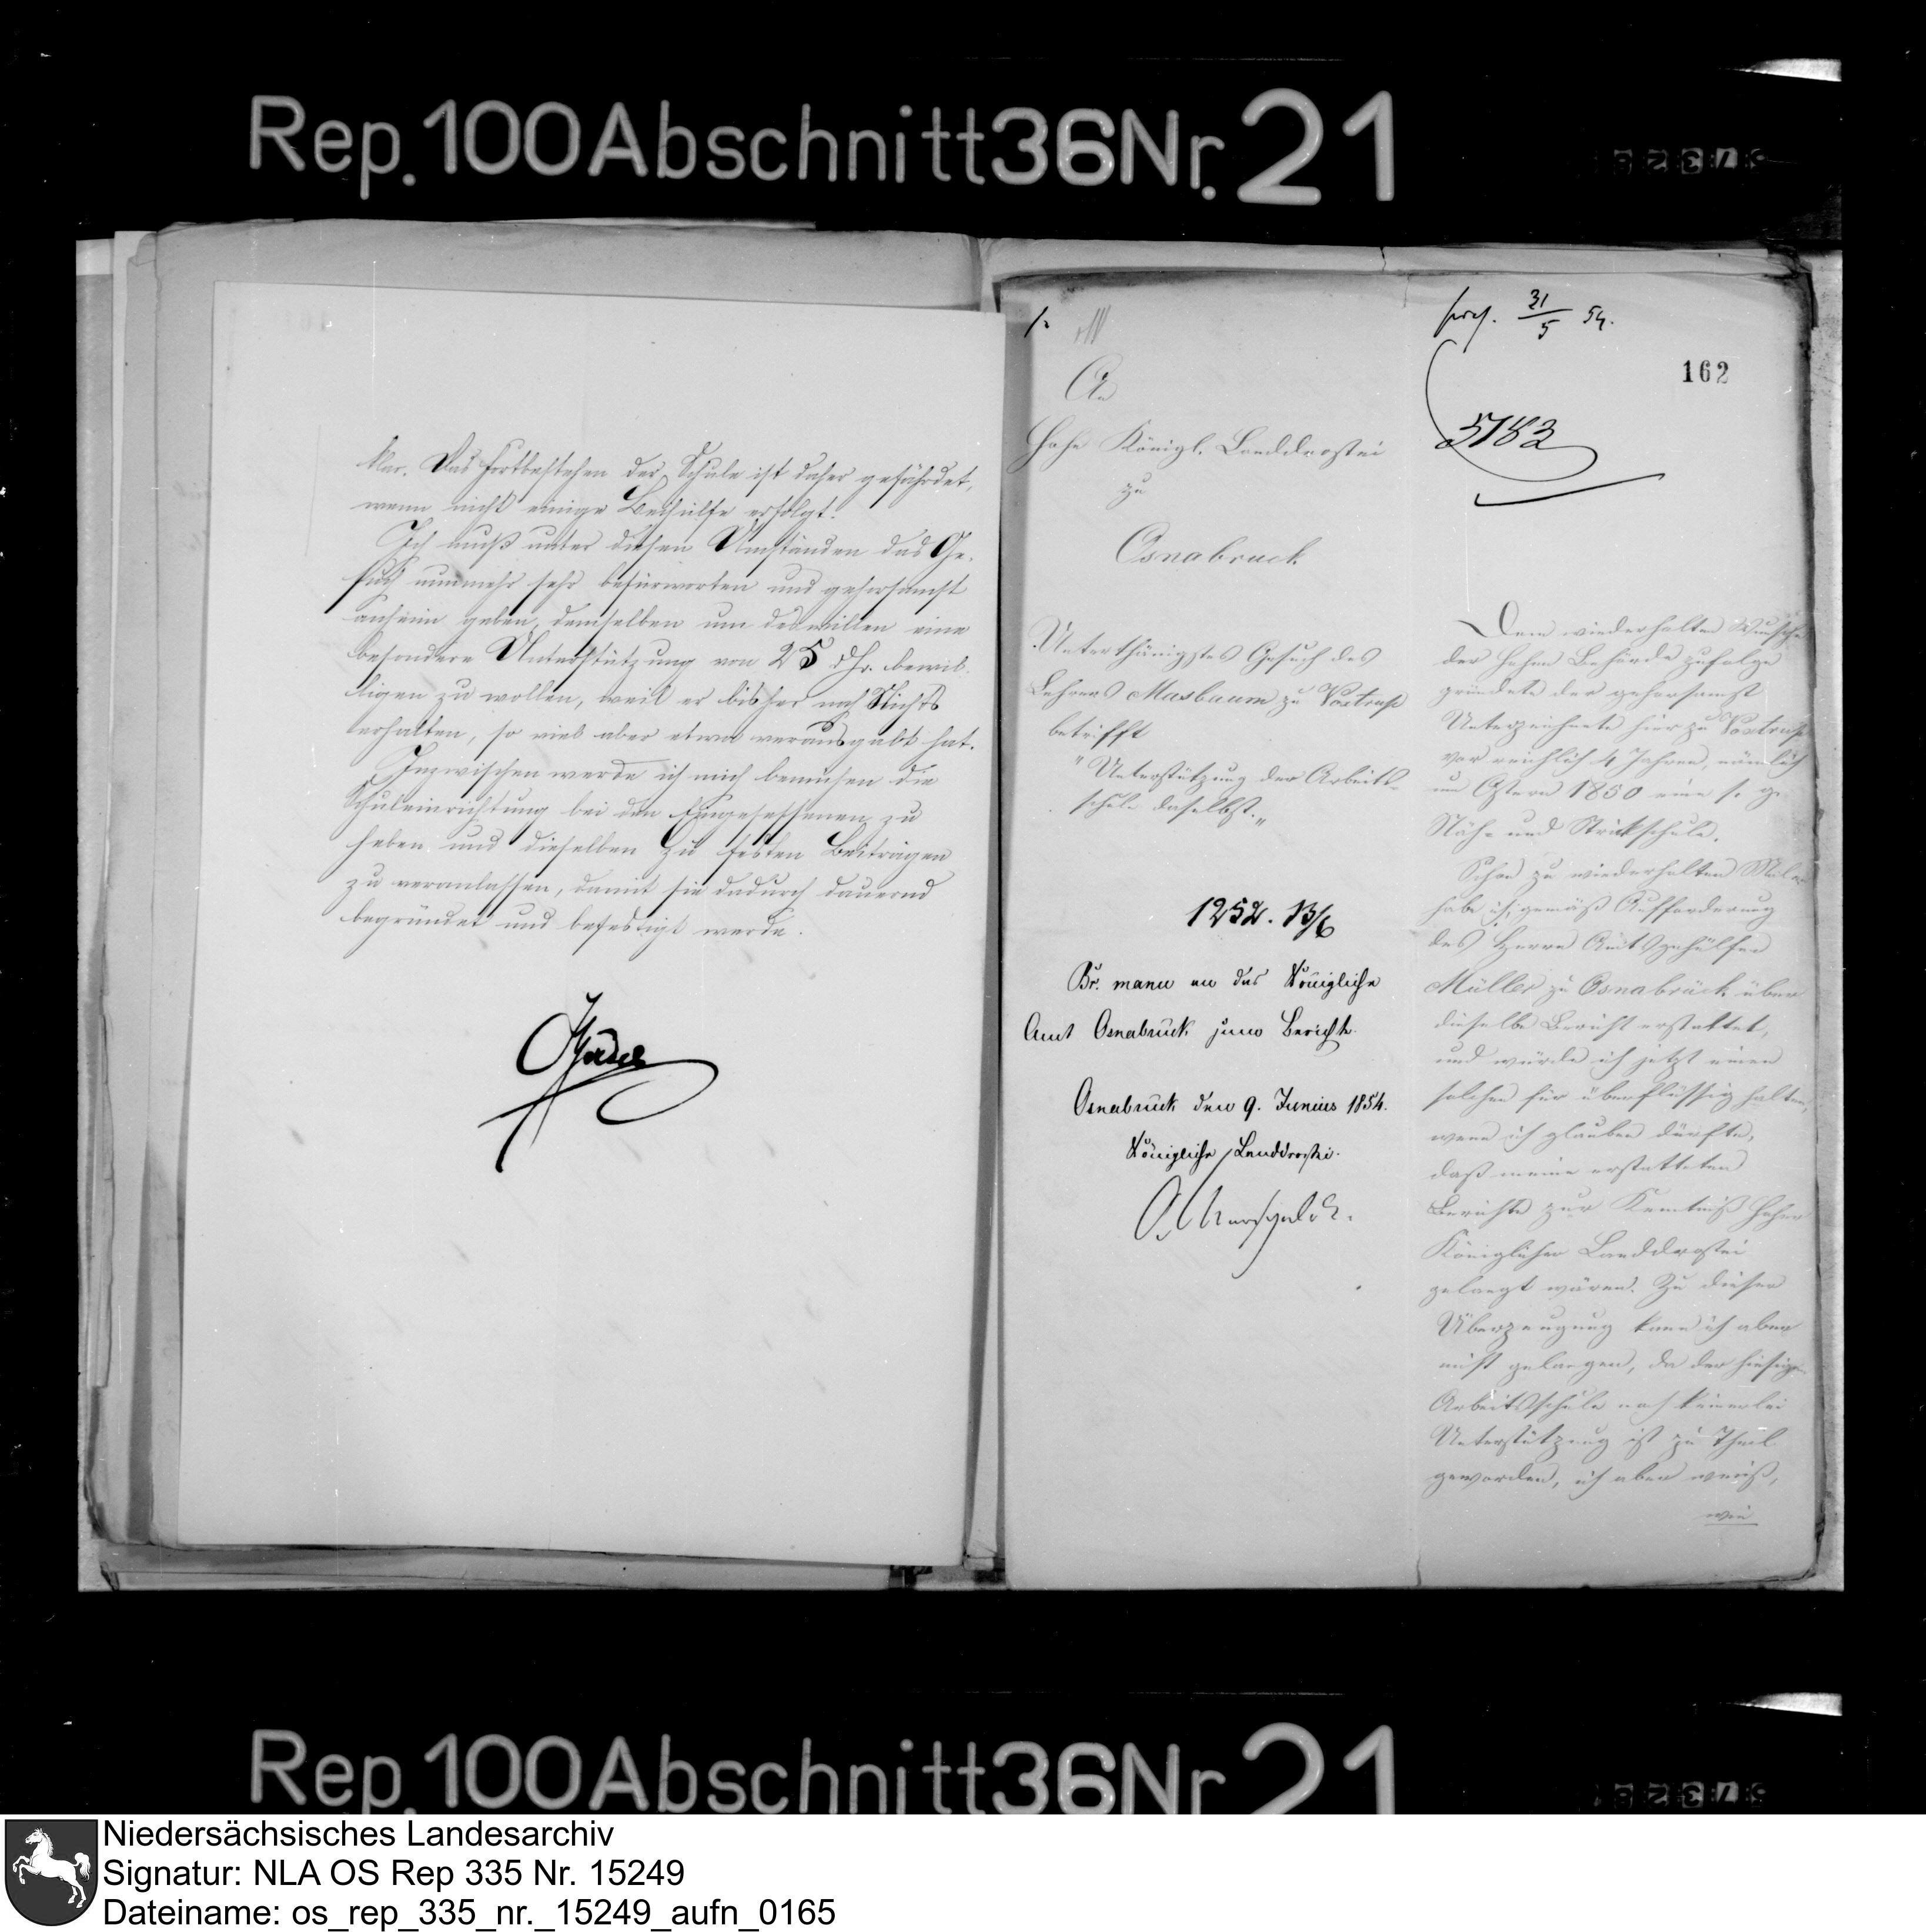 Rep. 100 Abschnitt 36 Nr. 21
ler. Das Fortbestehen der Schule ist daher gefährdet,
wenn nicht einige Beihülfe erfolgt.
Ich muß unter diesen Umständen das Ge-
such nunmehr sehr befürworten und gehorsamst
anheim geben, demselben um deswillen eine
besondere Unterstützung von 25 Thr. bewil-
ligen zu wollen, weil er bisher noch Nichts
erhalten, so viel aber etwa verausgabt hat.
Inzwischen werde ich mich bemühen die
Schuleinrichtung bei den Eingesessenen zu
heben und dieselben zu festen Beiträgen
zu veranlassen, damit sie dadurch dauernd
begründet und befestigt werde.
praes. 31/5 54.
162
5783
An
Hohe Königl. Landdrostei
zu
Osnabruck
Unterthänigstes Gesuch des
Lehrers Masbaum zu Voxtrup
betrifft
"Unterstützung der Arbeits-
schule daselbst."
1252. B/6
Br. manu an das Königliche
Amt Osnabrück zum Bericht.
Osnabrück den 9. Junius 1854.
Königliche Landdrostei.
Dem wiederholten Wunsche
der hohen Behörde zufolge
gründete der gehorsamst
Unterzeichnete hier zu Voxtrup
vor reichlich 4 Jahren, nämlich
um Ostern 1850 eine s. g.
Näh- und Strickschule.
Schon zu wiederholten Malen
habe ich, gemäß Aufforderung
des Herrn Amtsgehülfen
Müller zu Osnabrück über
dieselbe Bericht erstattet,
und würde ich jetzt einen
solchen für überflüssig halten,
wenn ich glauben dürfte,
daß meine erstatteten
Berichte zur Kenntniß hoher
Königlicher Landdrostei
gelangt wären. Zu dieser
Überzeugung kann ich aber
nicht gelangen, da der hiesigen
Arbeitsschule noch keinerlei
Unterstützung ist zu Theil
geworden, ich aber weiß,
wie
Rep. 100 Abschnitt 36 Nr. 21
Niedersächsisches Landesarchiv
Signatur: NLA OS Rep 335 Nr. 15249
Dateiname: os_rep_335_nr._15249_aufn_0165